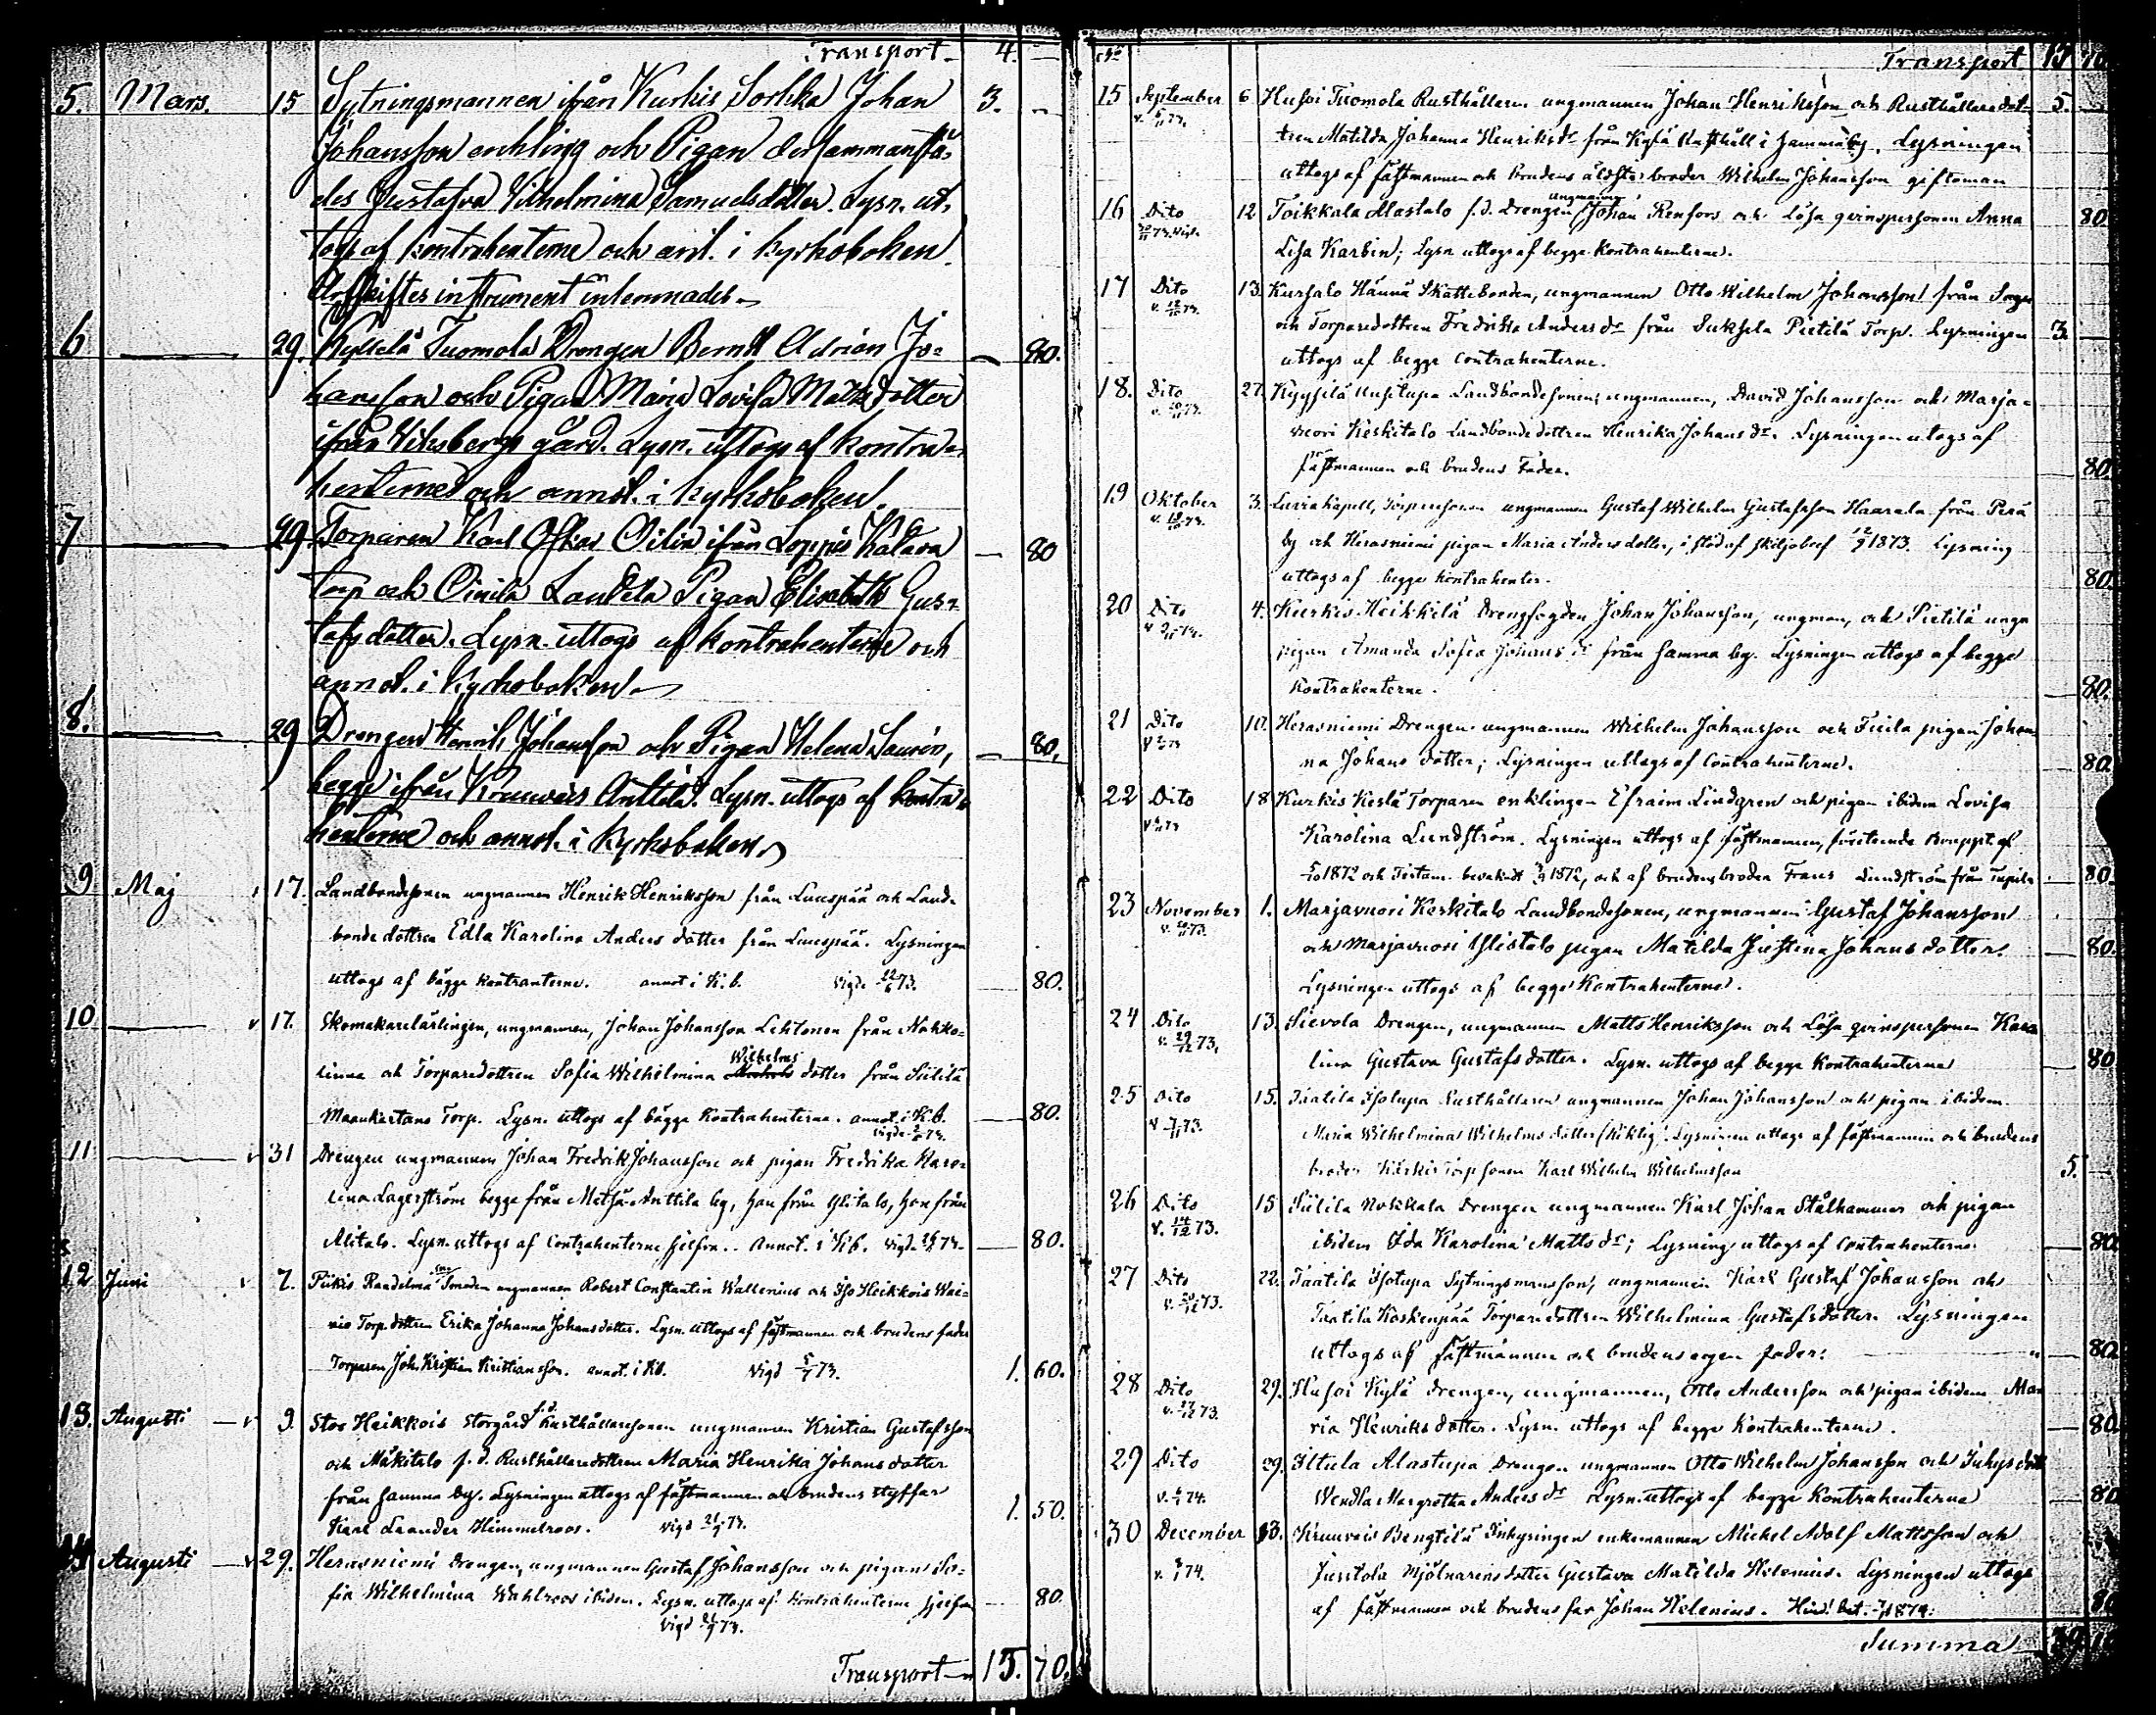 Transport 4. —
5. Mars. 15 Sytningsmannen ifrån Kurkis Sorkka Johan 3. —
Johansson enkling och Pigan dersammanstä-
des Gustafva Vilhelmina Samuelsdotter. Lysn. ut-
togs af kontrahenterne och ant. i kyrkoboken.
Arfskiftesinstrument inlemnades.
6 — 29. Kyllelä Tuomola Drengen Berndt Adrian Jo- — 80.
hansson och Pigan Maria Lovisa Matsdotter
ifrån Wiksbergs gård. Lysn. uttogs af kontra-
henterne och annot. i kyrkoboken.
7 — 29 Torparen Karl Oskar Oilin ifrån Loppis Kalava — 80
torp och Oinila Laukela Pigan Elisabeth Gus-
tafsdotter. Lysn. uttogs af kontrahenterne och
annot. i Kyrkoboken
8. — 29 Drengen Henrik Johansson och Pigan Helena Saurén, — 80.
begge ifrån Kruuvais Anttila. Lysn. uttogs af kontra-
henterne och annot. i kyrkoboken
9 Maj 17. Landbondesonen ungmannen Henrik Henriksson från Luuspää och Land-
bonde dottren Edla Karolina Anders dotter från Luuspää. Lysningen
uttogs af bägge kontranterne. annot i K. b. Vigde 22/6 73. — 80.
10 — v 17. Skomakarelärlingen, ungmannen, Johan Johansson Lehtonen från Nahko-
linna och Torparedottren Sofia Wilhelmina Wilhelms dotter från Süllilä
Maankartano Torp. Lysn. uttogs af bägge Kontrahenterne. annot. i K.b. — 80.
11 — v 31 Drengen ungmannen Johan Fredrik Johansson och pigan Fredrika Karo-
lina Lagerström begge från Metsä-Anttila by, han från Ylitalo, hon från
Alitalo. Lysn. uttogs af Contrahenterne sjelfva.. Annot. i K.b. — 80.
12 Juni v 7. Piikis Raadelma Smeden ungmannen Robert Constantin Wallenius och Iso Heikkois Wai-
nio Torp. dottren Erika Johanna Johansdotter. Lysn. uttogs af fästmannen och brudens fader
Torparen Joh. Kristian Kristiansson. annot. i Kb. Vigd 5/7 73. 1. 60.
13. Augusti — v 9. Stor Heikkois Storgård f.d. Rusthållaresonen ungmannen Kristian Gustafsson
och Mäkitalo f. d. Rusthållaredottren Maria Henrika Johans dotter
från samma by. Lysningen uttogs af fästmannen och brudens styffar
Karl Leander Himmelroos. Vigd 21/9 73. 1. 50.
14 Augusti — v 29. Herasniemi drengen, ungmannen Gustaf Johansson och pigan So-
fia Wilhelmina Wahlroos ibidem. Lysn. uttogs af Kontrahenterne sjelfva — 80.
Transport — 15. 70.
Transport 15 70.
15 September 6 Husoi Tuomola Rusthållaren ungmannen Johan Henriksson och Rusthållaredot- 5. —
tren Matilda Johanna Henriksdr från Kylä Rusthåll i samma by. Lysningen
uttogs af fästmannen och brudens äldste broder Wilhelm Johansson giftoman
16 Dito 12 Toikkala Alastalo f.d. Drengen ungmannen Johan Renfors och Lösa qvinspersonen Anna 80.
Lisa Karbin; Lysn uttogs af begge Kontrahenterne.
17 Dito 13. Kursalo Hännä Skattebonden, ungmannen Otto Wilhelm Johansson från
och Torparedottren Fredrika Anders dr från Suksela Pietilä Torp. Lysningen 3. —
uttogs af begge Contrahenterne.
18. Dito 27. Kyynilä Uusitupa Landbondesonen, ungmannen, David Johansson och Marja-
vuori Keskitalo Landbondedottren Henrika Johans dr. Lysningen utogs af
fästmannen och brudens Fader. 80.
19 Oktober 3. Luvia kapell, Torparesonen ungmannen Gustaf Wilhelm Gustafsson Haarala från Perä
by och Herasniemi pigan Maria Anders dotter, i stöd af skiljobref 12/9 1873. Lysning
uttogs af begge Kontrahenter. 80.
20 Dito 4. Kurkis Heikkilä Drengfogden Johan Johansson, ungman, och Pietilä unga
pigan Amanda Sofia Johans dr från samma by. Lysningen uttogs af begge
Kontrahenterne. 80.
21 Dito 10. Herasniemi Drengen ungmannen Wilhelm Johansson och pigan Johan-
na Johans dotter; Lysningen uttogs af Contrahenterne. 80.
22 Dito 18 Kurkis Keslä Torparen enklingen Efraim Lindgren och pigan ibidem Lovisa
Karolina Lundström. Lysningen uttogs af fästmannen, företeende
1872 och Testam. bevakadt 1872, och af brudens broder Frans Lundström från 80.
23 November 1. Marjavuori Keskitalo Landbondesonen, ungmannen Gustaf Johansson
och Marjavuori Ylistalo pigan Matilda Justina Johans dotter. 80.
Lysningen uttogs af begge Kontrahenterne.
24 Dito 13. Sievola Drengen, ungmannen Matts Henriksson och Lösa qvinspersonen Karo-
lina Gustava Gustafs dotter. Lysn. uttogs af begge Kontrahenterne 80
25 Dito 15. Taatila Isotupa Rusthållaren ungmannen Johan Johansson och pigan ibidem
Maria Wilhelmina Wilhelms dotter. Lysningen uttogs af fästmannen och brudens
broder Torpsonen Karl Wilhelm Wilhelmsson 5. —
26 Dito 15 Süllila Nokkala Drengen ungmannen Karl Johan Stålhammar och pigan
ibidem Ida Karolina Matts dr; Lysning uttogs af Contrahenterne 80
27 Dito 22. Taatila Isotupa Sytningsmansson, ungmannen Karl Gustaf Johansson och
Taatila Koskenpää Torparedottren Wilhelmina Gustafsdotter. Lysningen
uttogs af fästmannen och brudens egen fader. — 80.
28 Dito 29. Husoi Kylä drengen, ungmannen, Otto Andersson och pigan ibidem Ma-
ria Henriks dotter. Lysn. uttogs af begge Kontrahenterne. 80.
29 Dito 29. Iltula Alastupa Drengen ungmannen Otto Wilhelm Johansson och
Wendla Margretha Anders dr Lysn. uttogs af begge Kontrahenterne 80
30 December 13. Kruuvais Bengtilä Inhysingen enkemannen Mickel Adolf Mattsson och
Juustola Mjölnarens dotter Gustava Matilda Helenius. Lysningen uttogs
af fästmannen och brudens far Johan Helenius. 80
Summa